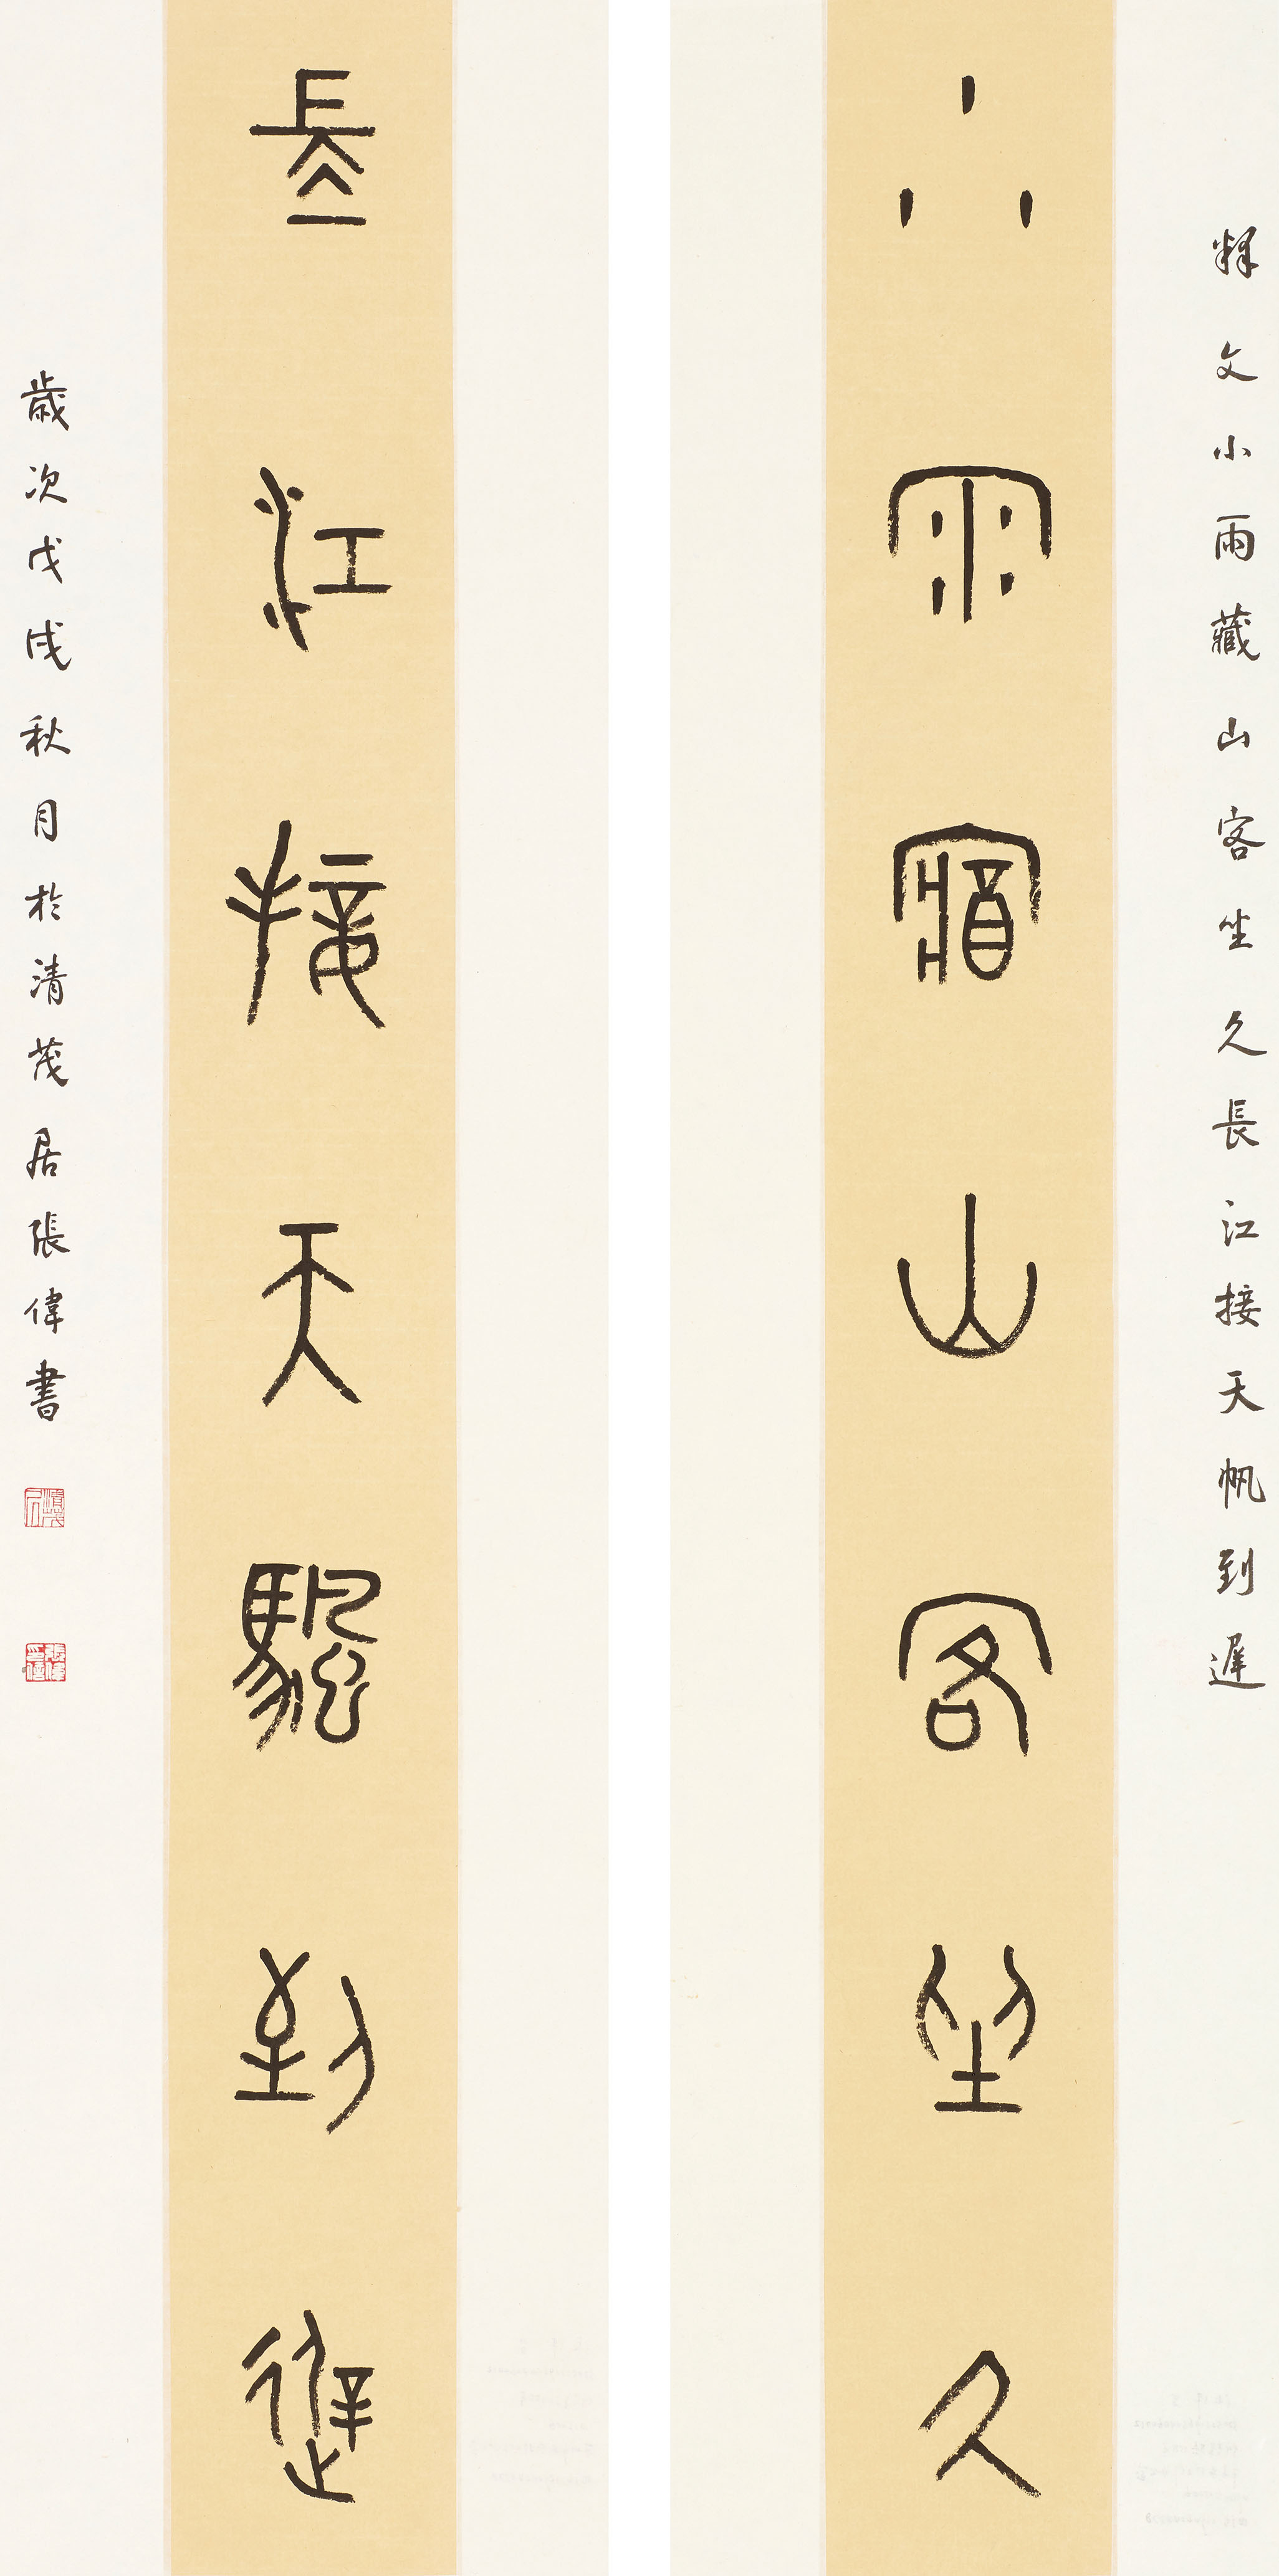 釋文小雨藏山客坐久長江接天帆到遲
小雨藏山客坐久
長江接天帆到遲
歲次戊戌秋月於清茂居張偉書